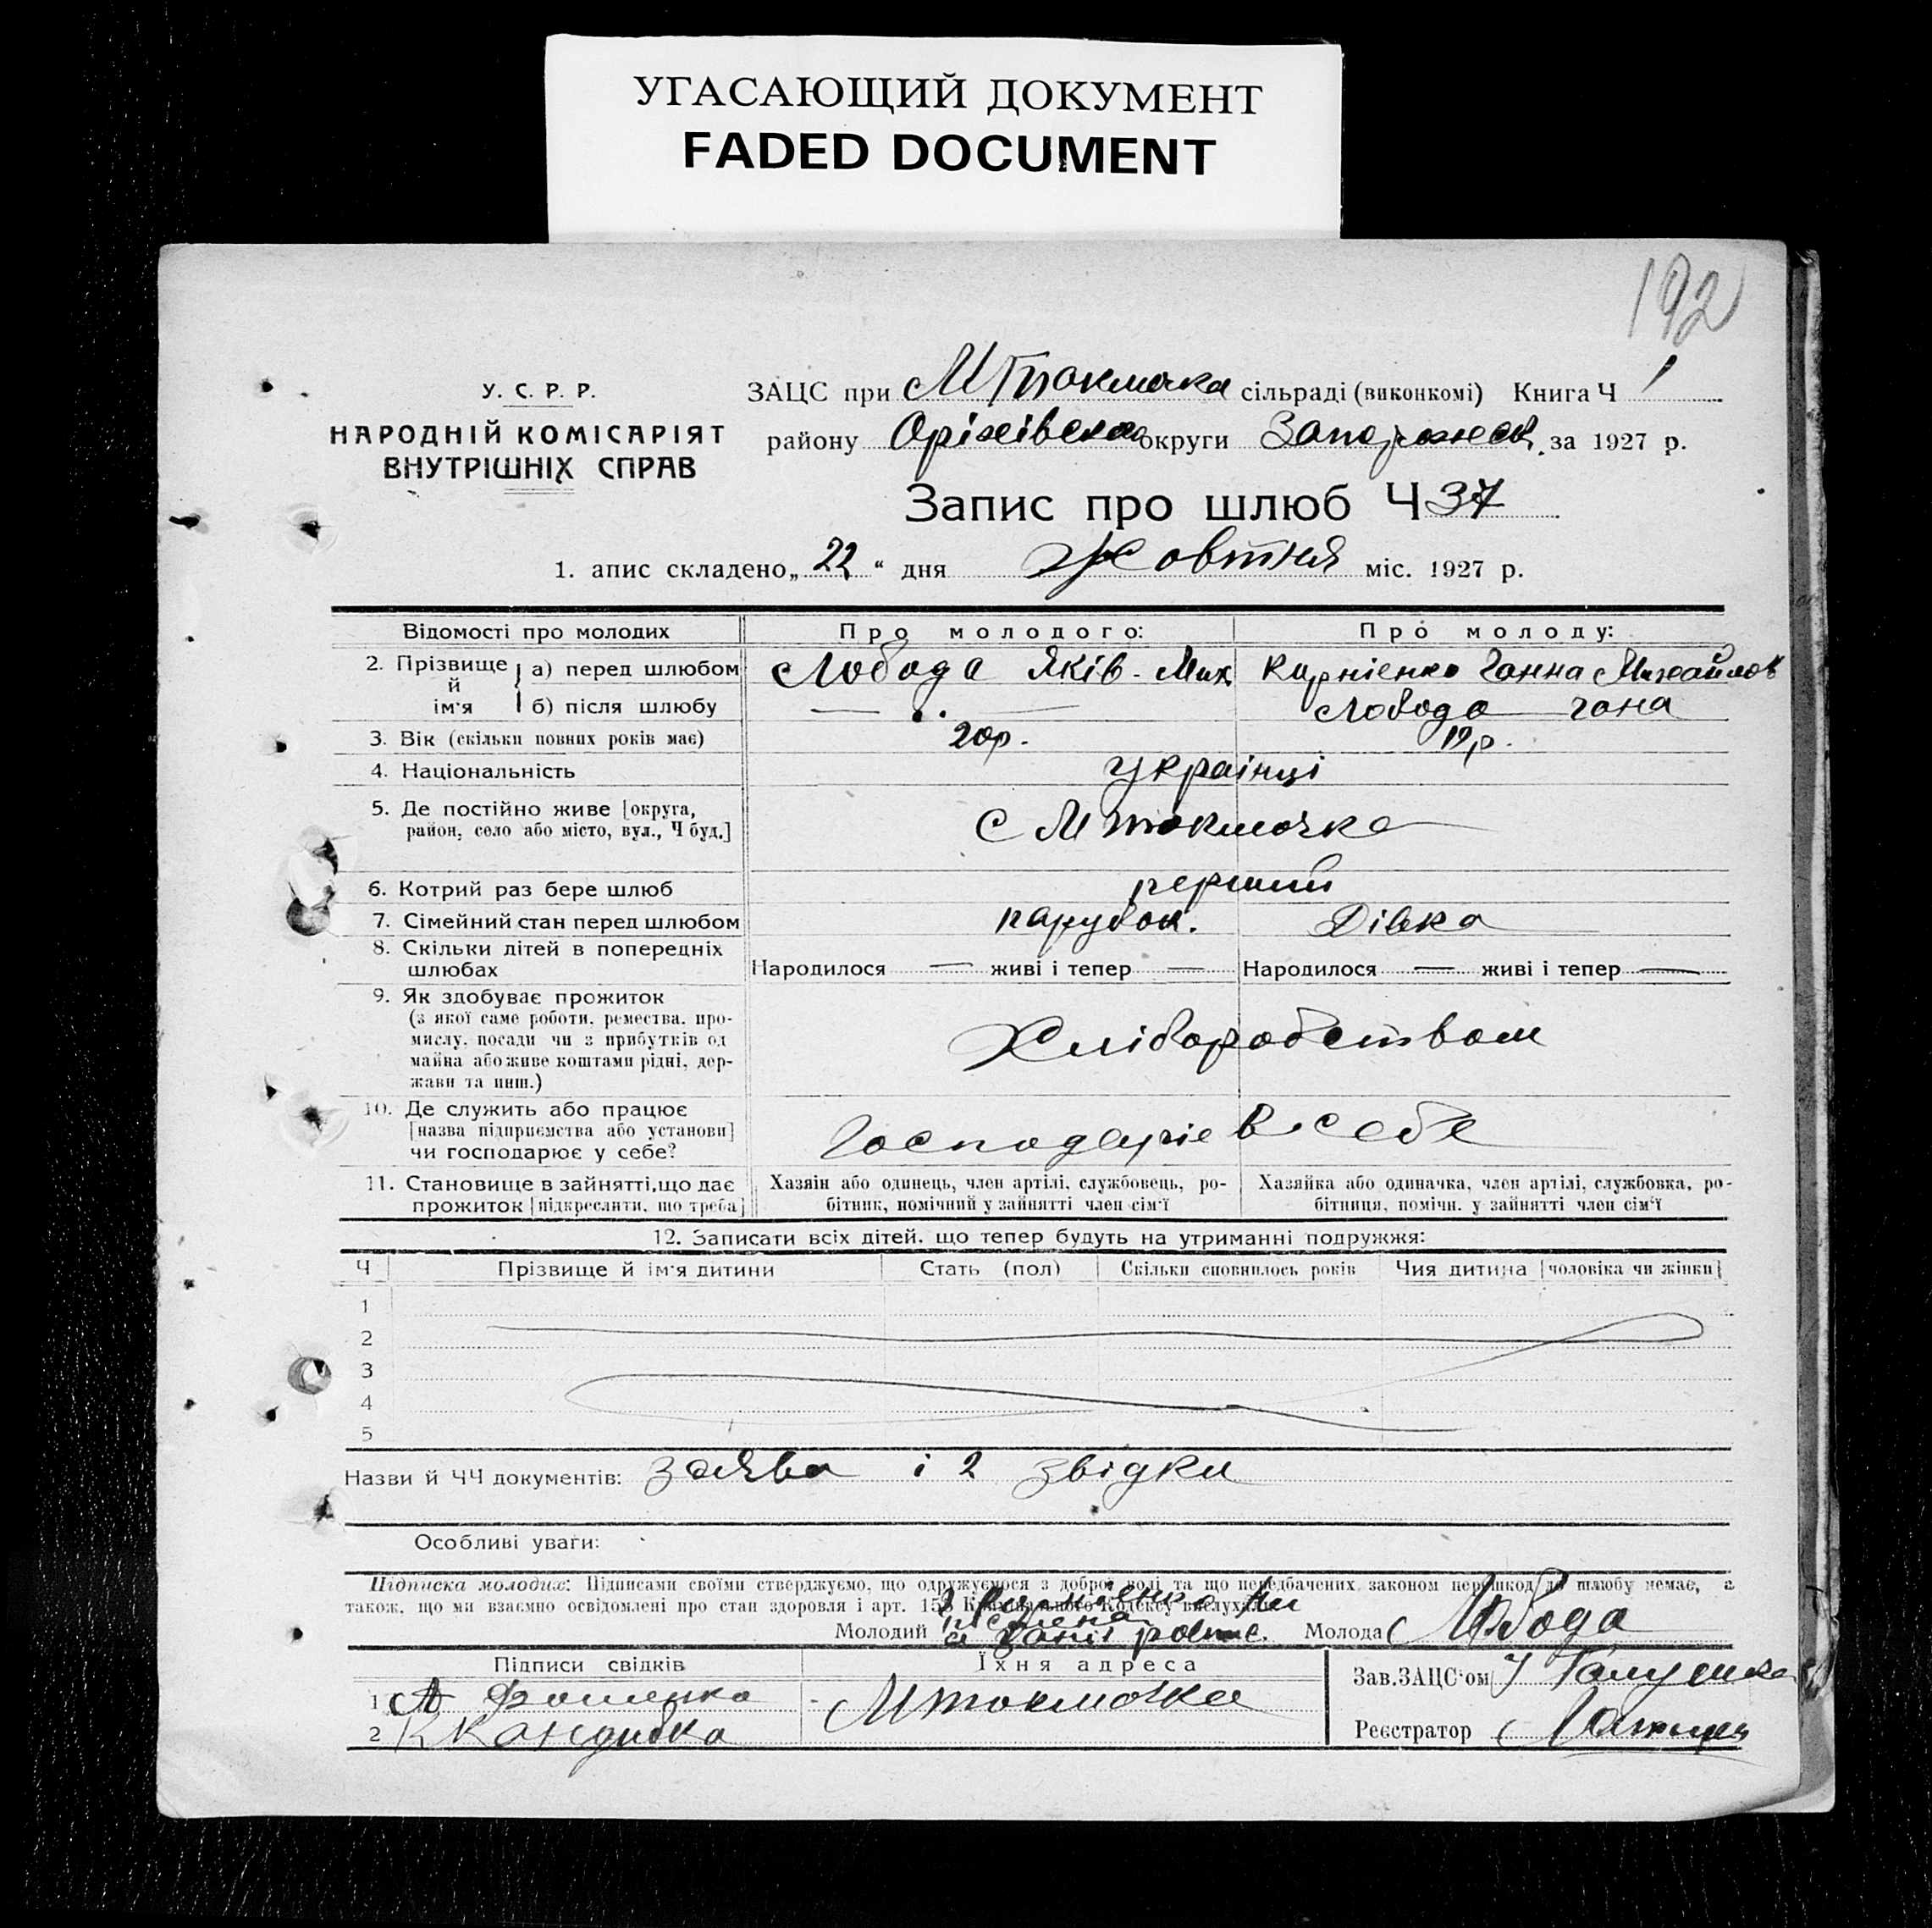 УГАСАЮЩИЙ ДОКУМЕНТ
FADED DOCUMENT
192
У. С. Р. Р.
НАРОДНІЙ КОМІСАРІЯТ
ВНУТРІШНІХ СПРАВ
ЗАЦС при МТокмачка сільраді (виконкомі) Книга Ч 1
району Оріхівська округи Запорожськ. за 1927 р.
Запис про шлюб Ч 37
1. апис складено „22“ дня Жовтня міс. 1927 р.
Відомості про молодих Про молодого: Про молоду:
2. Прізвище й ім'я а) перед шлюбом Лобода Яків. Мих Корніенко Ганна Михайлов
б) після шлюбу — — Лобода Гана
3. Вік (скільки повних років має) 20р. 19р.
4. Національність українці
5. Де постійно живе [округа, район, село або місто, вул., Ч буд.] С М Токмачка
6. Котрий раз бере шлюб перший
7. Сімейний стан перед шлюбом парубок. Дівка
8. Скільки дітей в попередніх шлюбах Народилося — живі і тепер — Народилося — живі і тепер —
9. Як здобуває прожиток
(з якої саме роботи, ремества, про-
мислу, посади чи з прибутків од
майна або живе коштами рідні, дер-
жави та инш.) Хліборобством
10. Де служить або працює
[назва підприємства або установи]
чи господарює у себе? Господаріе в себе
11. Становище в зайнятті, що дає Хазяїн або одинець, член артілі, службовець, ро- Хазяйка або одиначка, член артілі, службовка, ро-
прожиток [підкреслити, що треба] бітник, помічний у зайнятті член сім'ї бітниця, помічн. у зайнятті член сім'ї
12. Записати всіх дітей, що тепер будуть на утриманні подружжя:
Ч Прізвище й ім'я дитини Стать (пол) Скільки сповнилось років Чия дитина [чоловіка чи жінки]
1
2
3
4
5
Назви й ЧЧ документів: заява і 2 звідки
Особливі уваги:
Підписка молодих: Підписами своїми стверджуємо, що одружуємося з доброї волі та що передбачених законом перешкод до шлюбу немає, а
також, що ми взаємно освідомлені про стан здоровля і арт. 155 Кримінального Кодексу вислухали.
Молодий Молода Лобода
Підписи свідків Їхня адреса Зав. ЗАЦС'ом
1 МТокмачка
2 К Кандибка Реєстратор